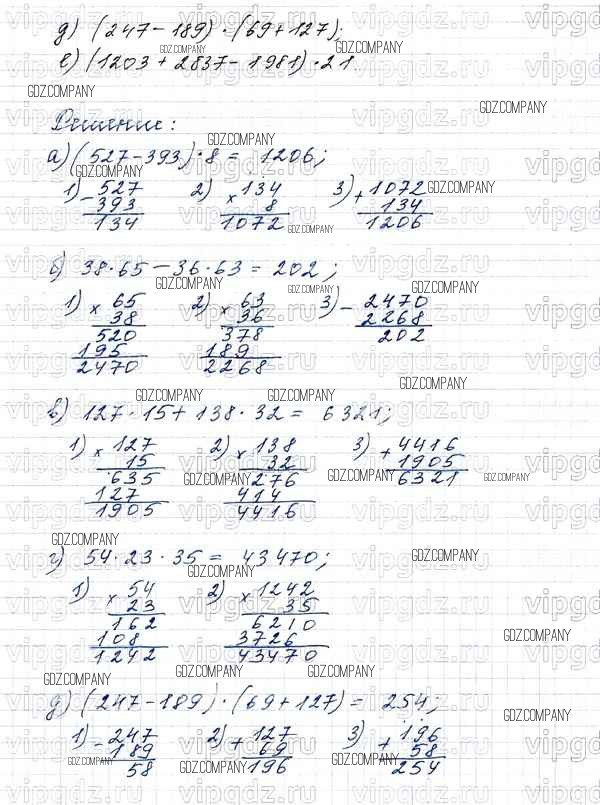 д) (247-189)·(69+127);
е) (1203+2837-1981)·21.
Решение:
а) (527-393)·8 = 1206;
1) - 527 2) × 134 3) + 1072
393 8 134
134 1072 1206
б) 38·65-36·63 = 202;
1) × 65 2) × 63 3) - 2470
38 36 2268
520 378 202
195 189
2470 2268
в) 127·15+138·32 = 6321;
1) × 127 2) × 138 3) + 4416
15 32 1905
635 276 6321
127 414
1905 4416
г) 54·23·35 = 43470;
1) × 54 2) × 1242
23 35
162 6210
108 3726
1242 43470
д) (247-189)·(69+127) = 254;
1) - 247 2) + 127 3) + 196
189 69 58
58 196 254
GDZ.COMPANY
vipgdz.ru